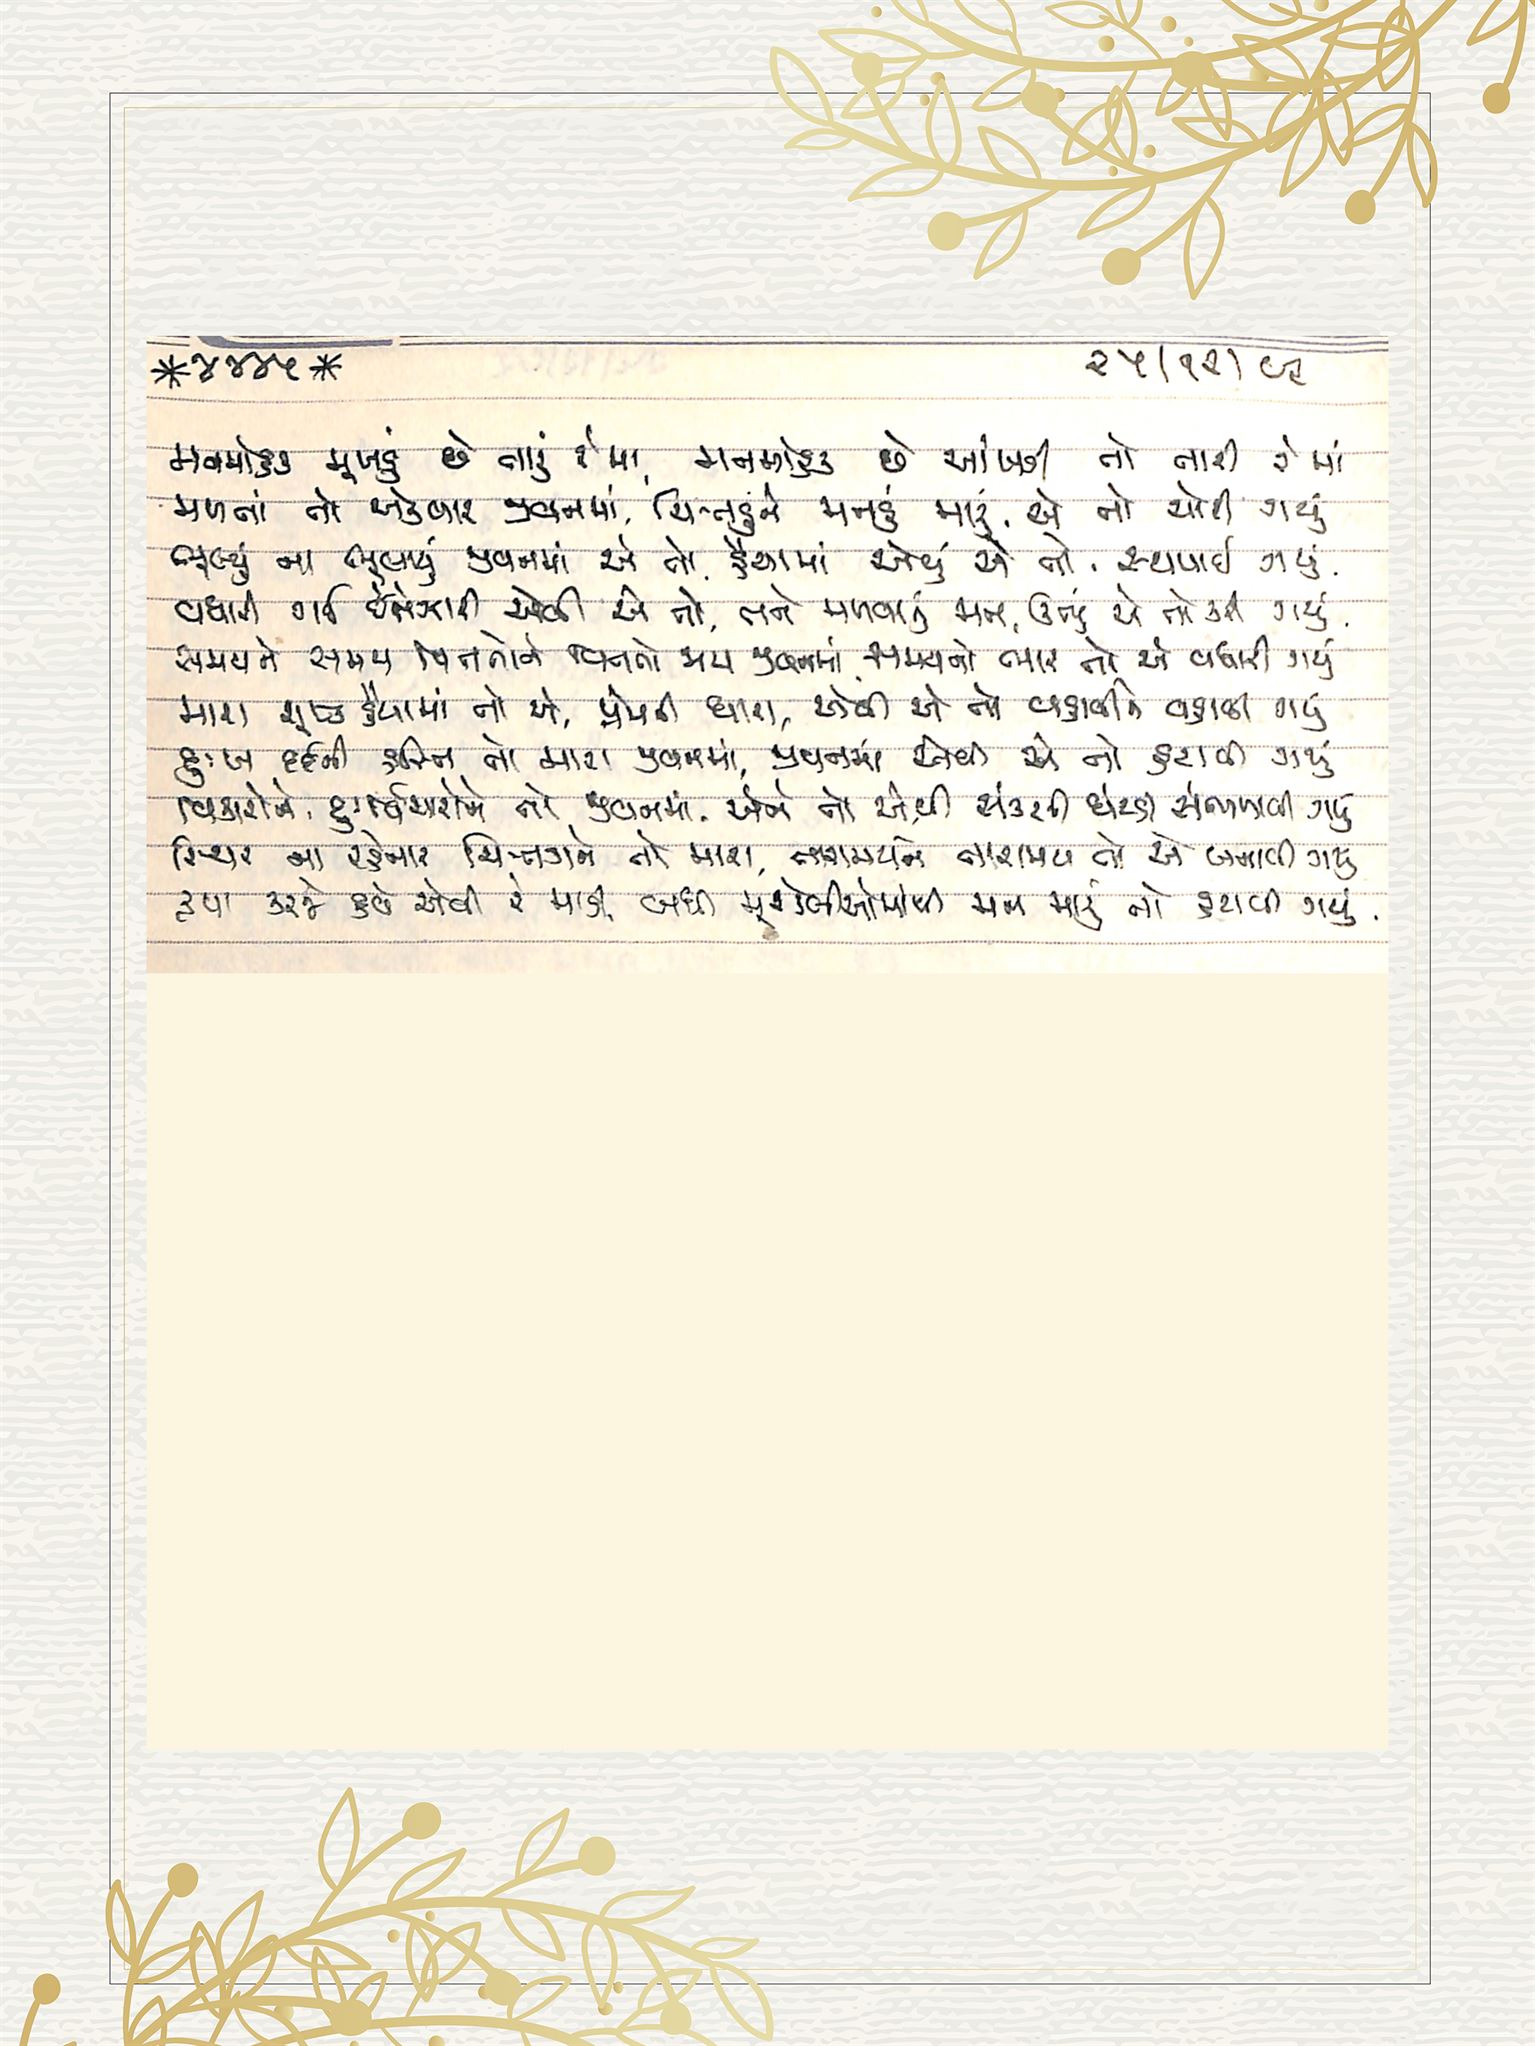 *૪૪૪૫* ૨૫/૧૨/૯૨
મનમોહક મુખડું છે તારું રે માં, મનમોહક છે આંખડી તો તારી રે માં
મળતાં તો એકવાર જીવનમાં, ચિત્તડુંને મનડું મારું, એ તો ચોરી ગયું
ભૂલ્યું ના ભૂલાયું જીવનમાં એ તો, હૈયામાં એવું એ તો, સ્થપાઈ ગયું.
વધારી ગઈ ઈંતેઝારી એવી એ તો, તને મળવાનું મન, ઊભું એ તો કરી ગયું.
સમયને સમય વિતતોને વિતતો જાય જીવનમાં, સમયનો ભાર તો એ વધારી ગયું
મારા શુષ્ક હૈયામાં તો એ, પ્રેમની ધારા, એવી એ તો વહાવીને વહાવી ગયું
દુઃખ દર્દની હસ્તિ તો મારા જીવનમાં, જીવનમાં એવી એ તો હટાવી ગયું
વિકારોને, દુઃર્વિચારોને તો જીવનમાં, એને તો એવી સંકટની ઘંટડી સંભળાવી ગયું
સ્થિર ના રહેનાર ચિત્તડાને તો મારા, તારામયને તારામય તો એ બનાવી ગયું
કૃપા કરજે હવે એવી રે માડી, બધી મુશ્કેલીઓમાંથી મન મારું તો હટાવી ગયું.